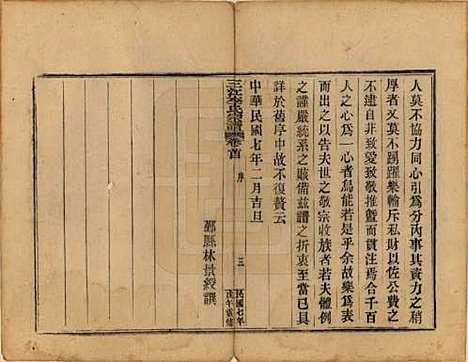 人莫不協力同心引爲分內事其資力之稍
厚者又莫不踴躍樂輸斥私財以佐公費之
不逮自非致愛致敬推暨而貫注焉合千百
人之心爲一心者烏能若是乎余故樂爲表
而出之以見世之敬宗收族者若夫體例
之謹嚴統系之賅備茲譜之折衷至當已具
詳於舊序中故不復贅云
中華民國七年二月吉旦
鄞縣林景綬譔
三江李氏宗譜
卷首
序
三
民國七年
戊午重修